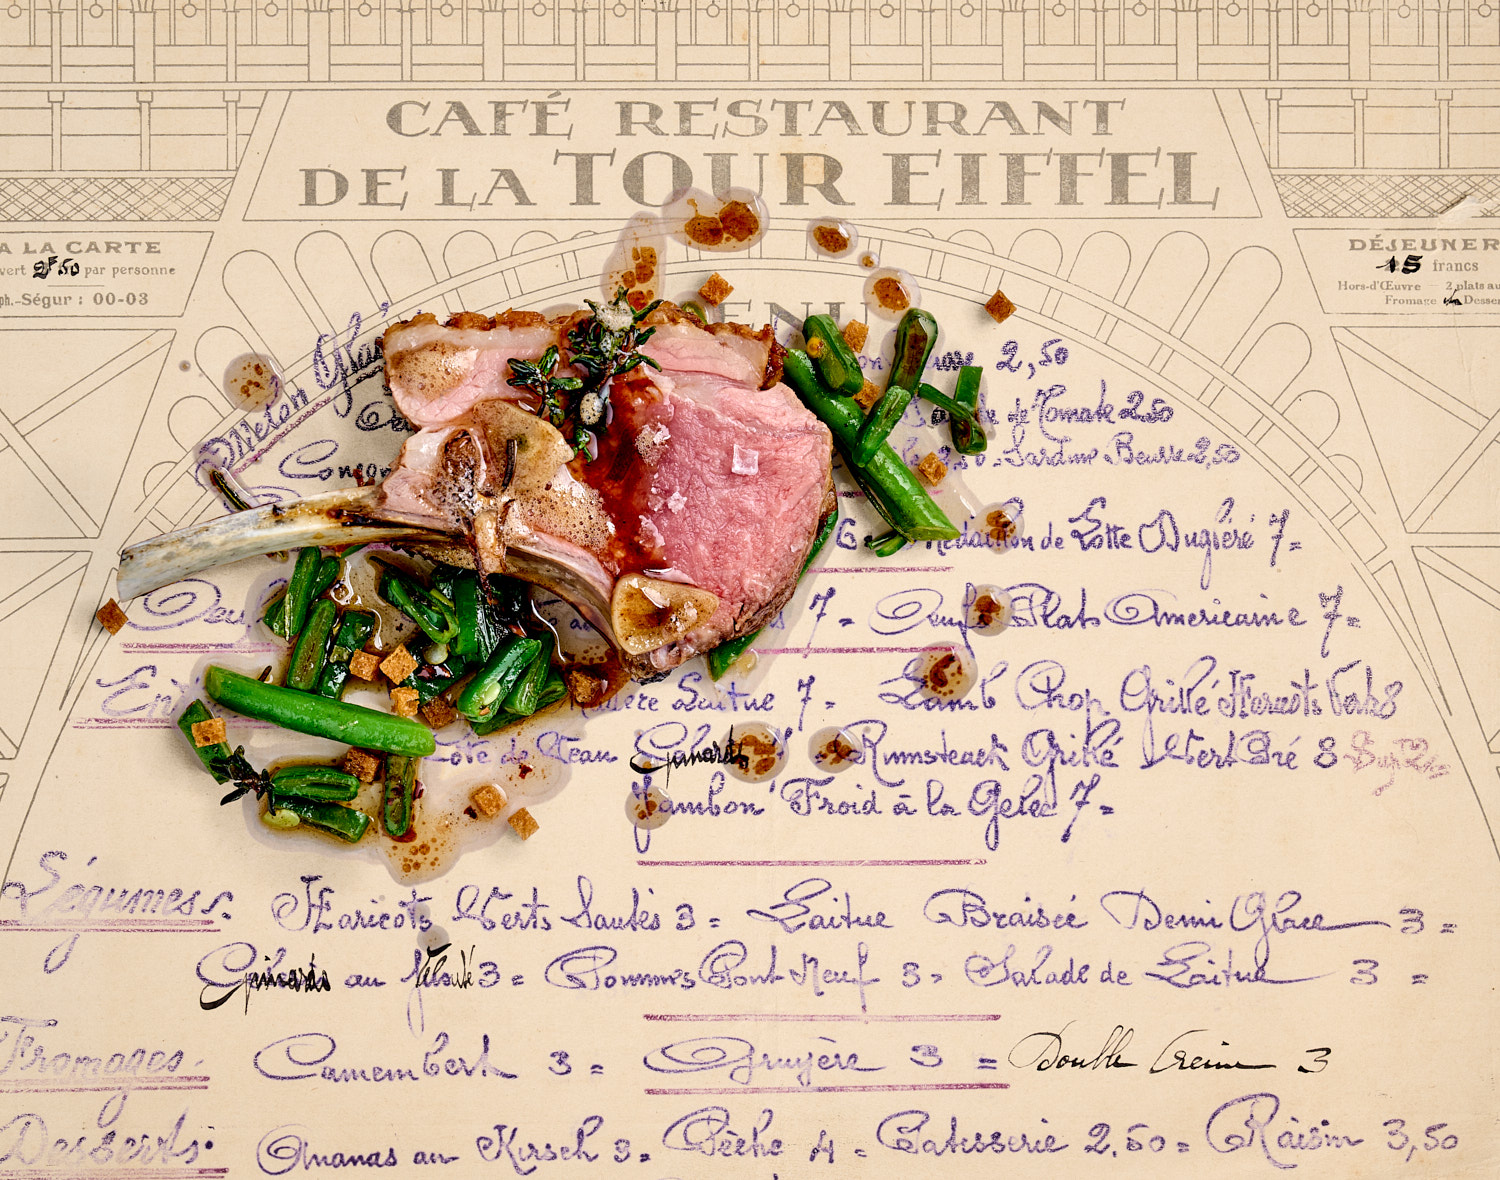 CAFÉ RESTAURANT
DE LA TOUR EIFFEL
A LA CARTE
vert 2F50 par personne
ph.-Ségur : 00-03
DÉJEUNER
15 francs
Hors-d'Œuvre – 2 plats au
Fromage Desser
MENU
Melon Gla
2,50
de Tomate 2,50
2,50 - Sardine Beurre 2,50
6 Médaillon de Lotte Duglèré 7 =
Oeuf 7 = Oeufs Plats Americaine 7 =
Ent Laitue 7 = Lamb Chop Grillé Haricots Verts 8
Côte de Veau Epinards 7 = Rumsteack Grillé Vert Pré 8
Jambon Froid à la Gelee 7 =
Légumes : Haricots Verts Sautés 3 = Laitue Braisée Demi Glace 3 =
Epinards au Velouté 3 = Pommes Pont Neuf 3 = Salade de Laitue 3 =
Fromages. Camembert 3 = Gruyère 3 = Double Crème 3
Desserts : Ananas au Kirsch 3 = Pêche 4 = Patisserie 2.50 = Raisin 3,50